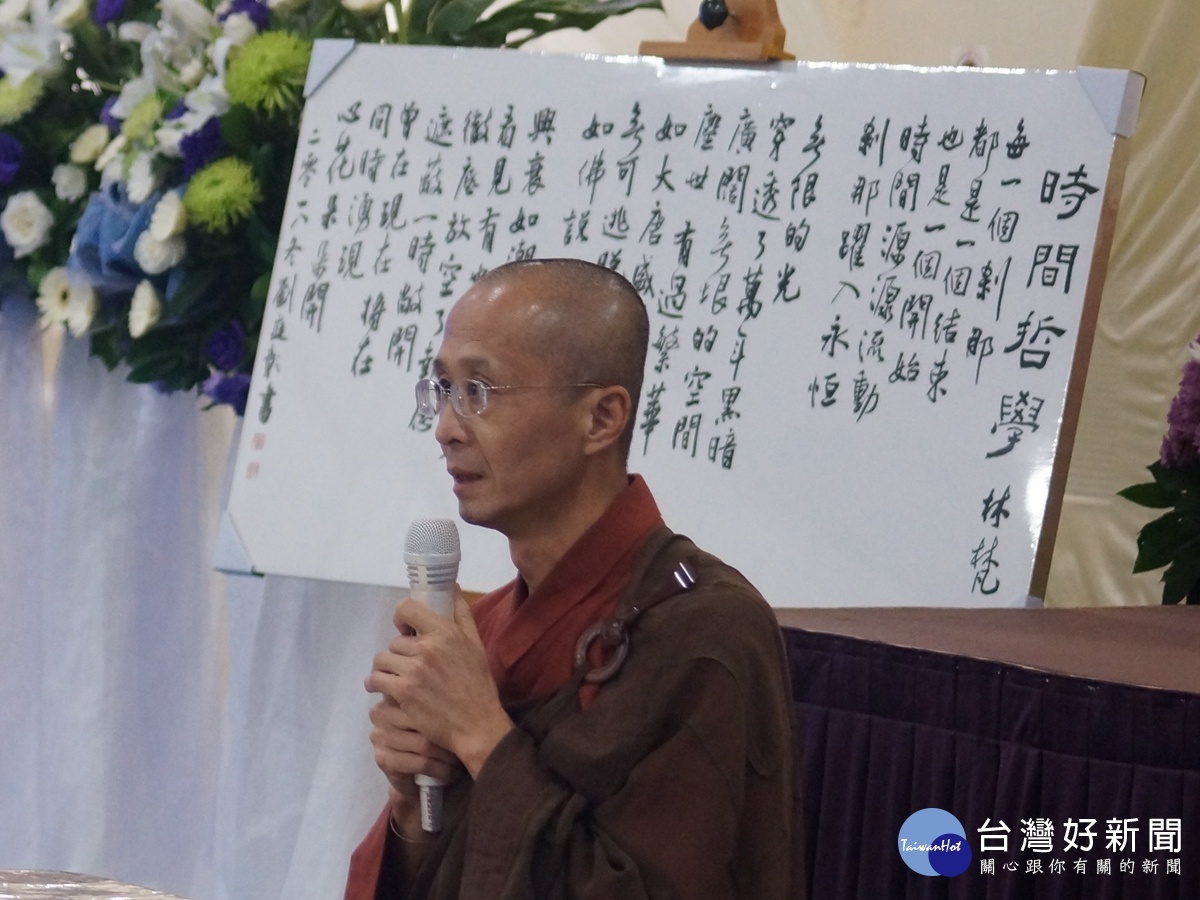 時間哲學 林梵
每一個剎那
都是一個結束
也是一個開始
時間源源流動
剎那躍入永恒
無限的光
穿透了萬年黑暗
廣闊無垠的空間
塵世 有過繁華
如大唐盛
無可逃
如佛說
興衰如潮
看見有
徹底放空了
遮蔽一時敞開
曾在現在將在
同時湧現
心花朵朵開
二零一六冬劉 書
台灣好新聞
TaiwanHot
關心跟你有關的新聞